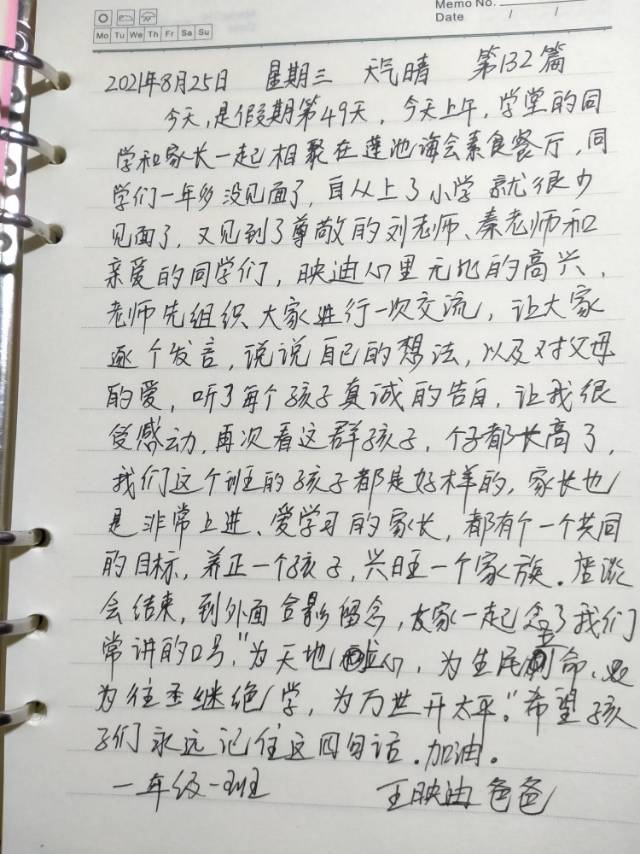 Memo No.
Mo Tu We Th Fr Sa Su
Date / /
2021年8月25日 星期三 天气晴 第132篇
今天,是假期第49天,今天上午,学堂的同
学和家长一起相聚在莲池海会素食餐厅,同
学们一年多没见面了,自从上了小学就很少
见面了,又见到了尊敬的刘老师、秦老师和
亲爱的同学们,映迪心里无比的高兴,
老师先组织大家进行一次交流,让大家
逐个发言,说说自己的想法,以及对父母
的爱,听了每个孩子真诚的告白,让我很
受感动,再次看这群孩子,个子都长高了,
我们这个班的孩子都是好样的,家长也
是非常上进、爱学习的家长,都有个一个共同
的目标,养正一个孩子,兴旺一个家族.座谈
会结束,到外面合影留念,大家一起念了我们
常讲的口号,"为天地 心,为生民 命,
为往圣继绝学,为万世开太平."希望孩
子们永远记住这四句话.加油。
一年级一班 王映迪爸爸